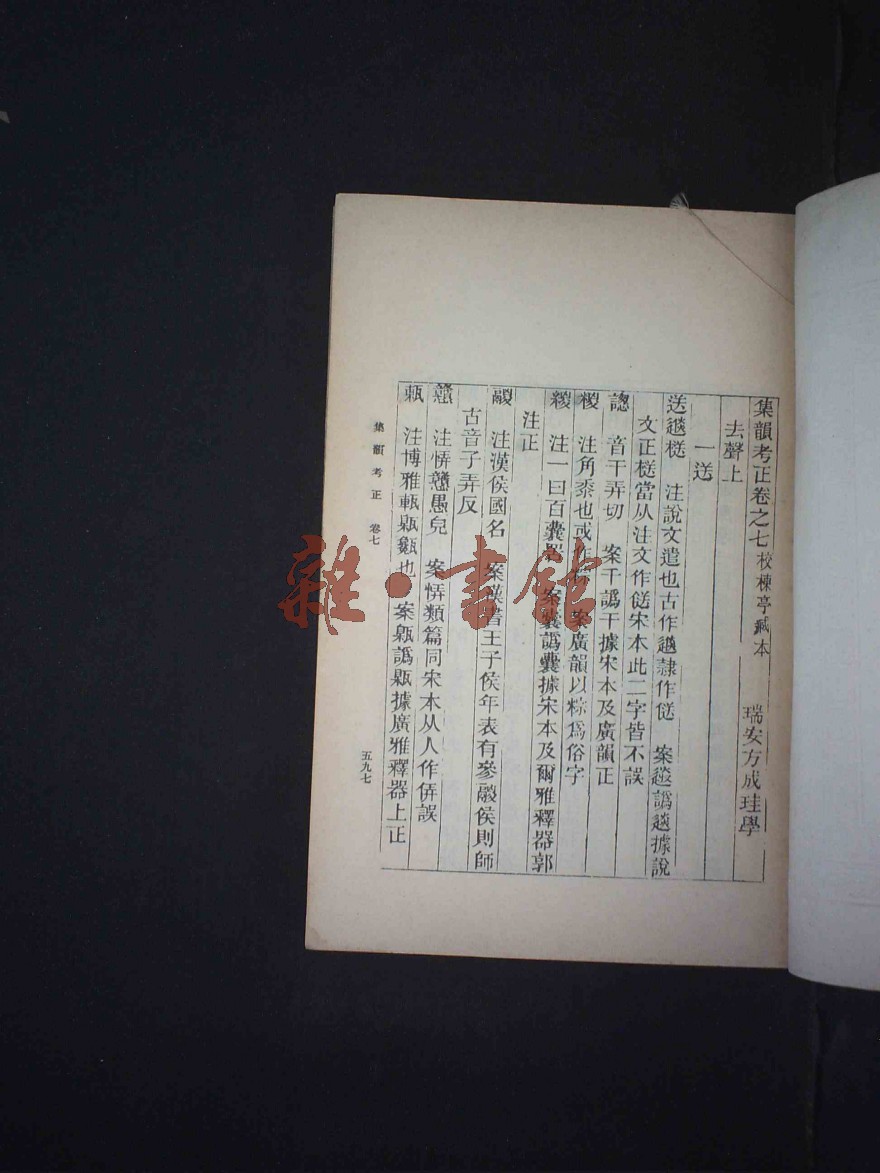 集韻考正卷之七 校楝亭臧本 瑞安方成珪學
去聲上
一送
送 注說文遣也古作 隸作 案 譌 據說
文正 當从注文作 宋本此二字皆不誤
謥 音干弄切 案干譌干據宋本及廣韻正
稯 注角黍也或作 案廣韻以粽爲俗字
緵 注一曰百囊罟 案囊譌囊據宋本及爾雅釋器郭
注正
鬷 注漢侯國名 案漢書王子侯年表有參鬷侯則師
古音子弄反
戇 注 戇愚皃 案 類篇同宋本从人作 誤
注博雅 也 案 譌 據廣雅釋器上正
集韻考正 卷七
五九七
雜·書館